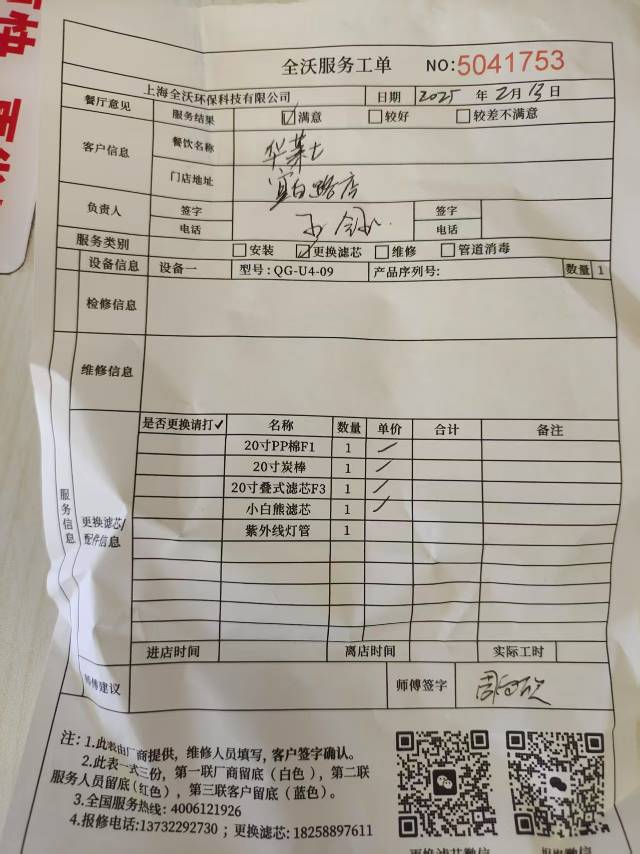 全沃服务工单 NO:5041753
上海全沃环保科技有限公司 日期 2025 年 2 月 13 日
餐厅意见 服务结果 ☑满意 □较好 □较差不满意
客户信息 餐饮名称 华莱士
门店地址 宜白路店
负责人 签字 签字
电话 电话
服务类别 □安装 ☑更换滤芯 □维修 □管道消毒
设备信息 设备一 型号: QG-U4-09 产品序列号: 数量 1
检修信息
维修信息
服务信息
更换滤芯/配件信息
是否更换请打✓ 名称 数量 单价 合计 备注
20寸PP棉F1 1
20寸炭棒 1
20寸叠式滤芯F3 1
小白熊滤芯 1
紫外线灯管 1
进店时间 离店时间 实际工时
师傅建议 师傅签字
注: 1.此表由厂商提供，维修人员填写，客户签字确认。
2.此表一式三份，第一联厂商留底（白色），第二联
服务人员留底(红色)，第三联客户留底（蓝色）。
3.全国服务热线: 4006121926
4.报修电话:13732292730；更换滤芯: 18258897611